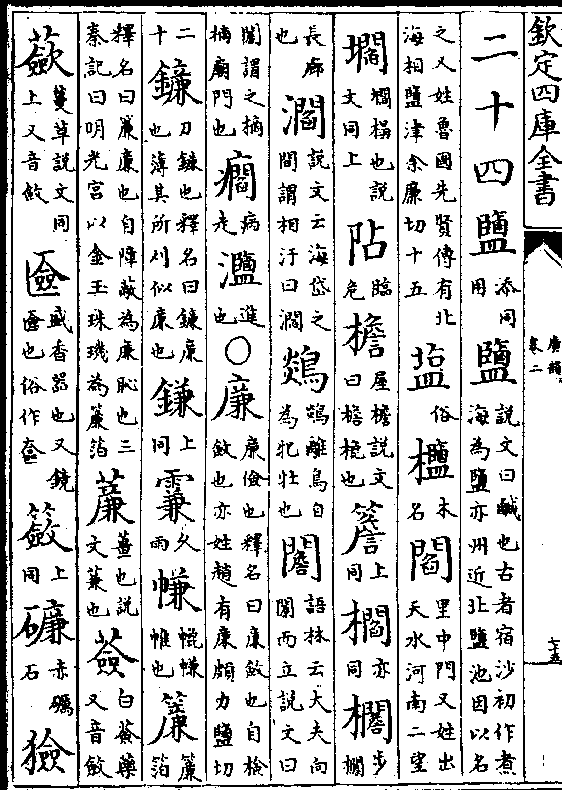 欽定四庫全書
廣韻
卷二
二十四鹽添同用鹽說文曰鹹也古者宿沙初作煮海為鹽亦州近北鹽池因以名
之又姓魯國先賢傳有北海相鹽津余廉切十五塩俗櫩木名閻里中門又姓出天水河南二望
壛櫩榒也說文同上阽臨危檐屋檐說文曰檐梍也簷上同櫩亦同步櫩
長廊也灁說文云海岱之間謂相汙曰灁鷣離鳥自為牝牡也語林云大夫向閣而立說文曰
閣謂之樀樀廟門也病走灆進也○廉廉儉也釋名曰廉斂也自檢斂也亦姓趙有廉頗力鹽切
二十鐮刀鐮也釋名曰鐮廉也薄其所刈似廉也鎌上同䨬久雨㡘帷也簾簾箔
釋名曰簾廉也自障蔽為廉恥也三秦記曰明光宮以金玉珠璣為簾箔薕薑也說文蒹也薟白薟藥又音斂
蘞蔓草說文同上又音斂匳盛香器也又鏡匳也俗作奩籢上同磏赤礪石獫